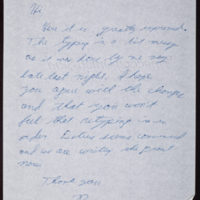 Hi
Here it is greatly improved.
The typing is a bit messy
as it was done by me very
late last night. I hope
you agree with the changes
and that you won't
feel that retyping is in
order. Dates were
and we are writing the print
now.
Thank you